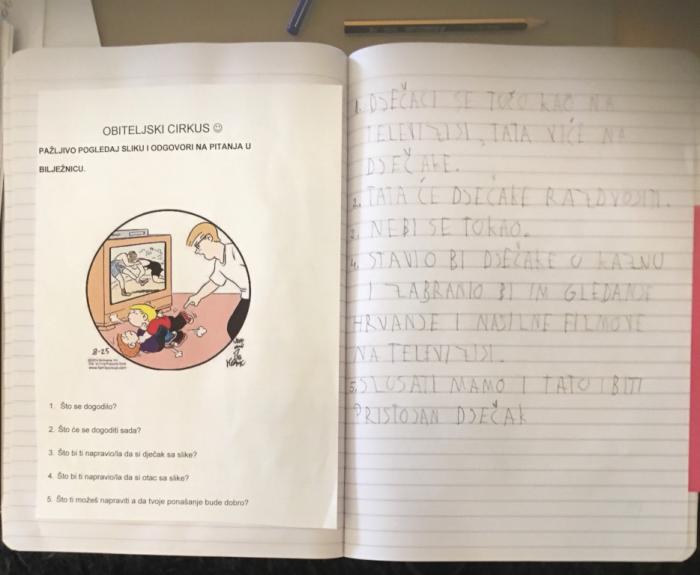 OBITELJSKI CIRKUS ☺
PAŽLJIVO POGLEDAJ SLIKU I ODGOVORI NA PITANJA U
BILJEŽNICU.
8-25
1. Što se dogodilo?
2. Što će se dogoditi sada?
3. Što bi ti napravio/la da si dječak sa slike?
4. Što bi ti napravio/la da si otac sa slike?
5. Što ti možeš napraviti a da tvoje ponašanje bude dobro?
1. DJEČACI SE TOČO KAO NA
TELEVIZIJI, TATA VIČE NA
DJEČAKE.
2. TATA ĆE DJEČAKE RAZDVOJITI.
3. NEBI SE TOKAO.
4. STAVIO BI DJEČAKE U KAZNU
I ZABRANIO BI IM GLEDANJE
HRVANJE I NASILNE FILMOVE
NA TELEVIZIJI.
5. SLUŠATI MAMO I TATO I BITI
PRISTOJAN DJEČAK